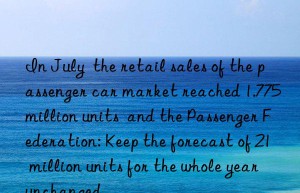 In July the retail sales of the p
assenger car market reached 1.775
million units and the Passenger F
ederation: Keep the forecast of 21
million units for the whole year
unchanged